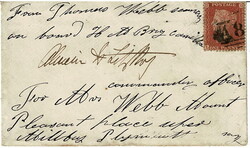 From Thomas Webb seaman
on board H M Brig
commander officer
For Mrs Webb Mount
Pleasant place upper
Millbay Plymouth
8